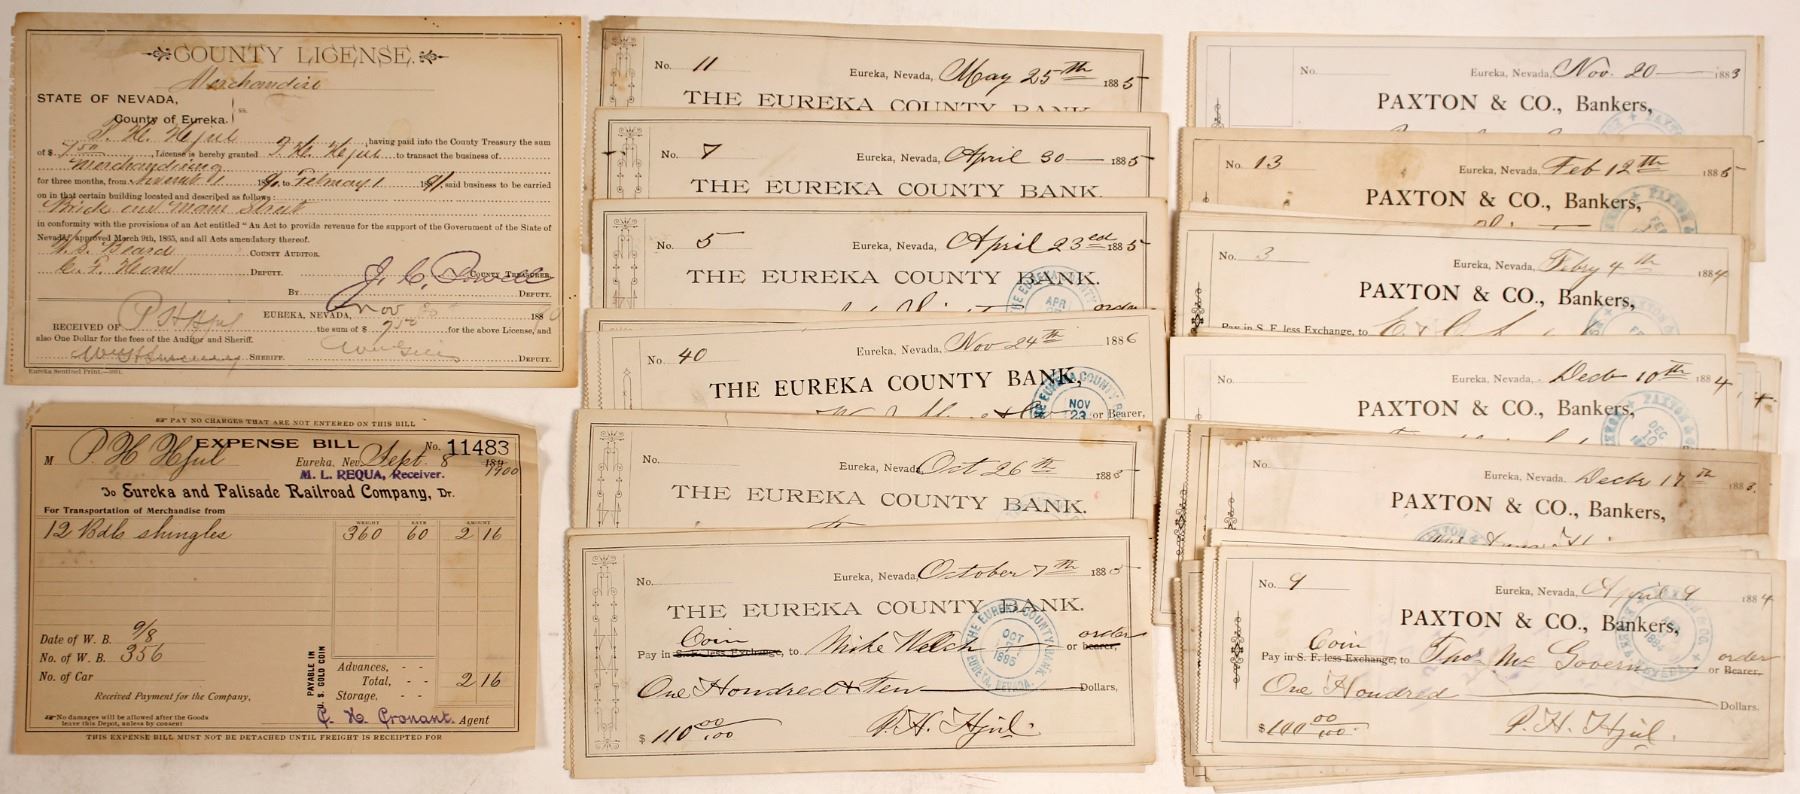 COUNTY LICENSE.
Merchandise
STATE OF NEVADA,
ss.
County of Eureka.
P. H. Hjul, having paid into the County Treasury the sum
of $7 50, License is hereby granted P. H. Hjul to transact the business of
Merchandising
for three months, from November 1 1890, to February 1 1891, said business to be carried
on in that certain building located and described as follows:
Brick on Main Street
in conformity with the provisions of an Act entitled "An Act to provide revenue for the support of the Government of the State of
Nevada," approved March 9th, 1865, and all Acts amendatory thereof.
COUNTY AUDITOR.
DEPUTY.
COUNTY TREASURER.
By DEPUTY.
EUREKA, NEVADA, Nov 1890
RECEIVED OF P H Hjul the sum of $ 7.50 for the above License, and
also One Dollar for the fees of the Auditor and Sheriff.
SHERIFF. DEPUTY.
Eureka Sentinel Print.
PAY NO CHARGES THAT ARE NOT ENTERED ON THIS BILL
EXPENSE BILL No. 11483
M P. H. Hjul Eureka, Nev. Sept. 8 1900
M. L. REQUA, Receiver.
To Eureka and Palisade Railroad Company, Dr.
For Transportation of Merchandise from
WEIGHT RATE AMOUNT
12 Bdls shingles 360 60 2 16
Date of W. B. 9/8
No. of W. B. 356
No. of Car
Advances, - -
Total, - - 2 16
Storage, - -
PAYABLE IN
U. S. GOLD COIN
Received Payment for the Company,
No damages will be allowed after the Goods
leave this Depot, unless by consent
Agent
THIS EXPENSE BILL MUST NOT BE DETACHED UNTIL FREIGHT IS RECEIPTED FOR
No. 11 Eureka, Nevada, May 25th 1885
THE EUREKA COUNTY BANK
No. 7 Eureka, Nevada, April 30 1885
THE EUREKA COUNTY BANK.
No. 5 Eureka, Nevada, April 23rd 1885
THE EUREKA COUNTY BANK.
order
No. 40 Eureka, Nevada, Nov 24th 1886
THE EUREKA COUNTY BANK,
or Bearer,
No. Eureka, Nevada, Oct 26th 1885
THE EUREKA COUNTY BANK.
No. Eureka, Nevada, October 7th 1885
THE EUREKA COUNTY BANK.
Coin order
Pay in S. F. less Exchange, to Mike Welch or bearer,
One Hundred & Ten Dollars,
$ 110 00/100 P. H. Hjul.
THE EUREKA COUNTY BANK.
OCT
1885
EUREKA, NEVADA.
No. Eureka, Nevada, Nov. 20 1883
PAXTON & CO., Bankers,
No. 13 Eureka, Nevada, Feb 12th 1885
PAXTON & CO., Bankers,
No. 3 Eureka, Nevada, Febry 4th 1884
PAXTON & CO., Bankers,
Pay in S. F. less Exchange, to
No. Eureka, Nevada, Decb 10th 1884
PAXTON & CO., Bankers,
No. Eureka, Nevada. Decbr 17th 1883.
PAXTON & CO., Bankers,
No. 9 Eureka, Nevada, April 9 1884
PAXTON & CO., Bankers,
Coin order
Pay in S. F. less Exchange, to Thos Mc Govern or Bearer.
One Hundred Dollars.
$100 00/100 P. H. Hjul.